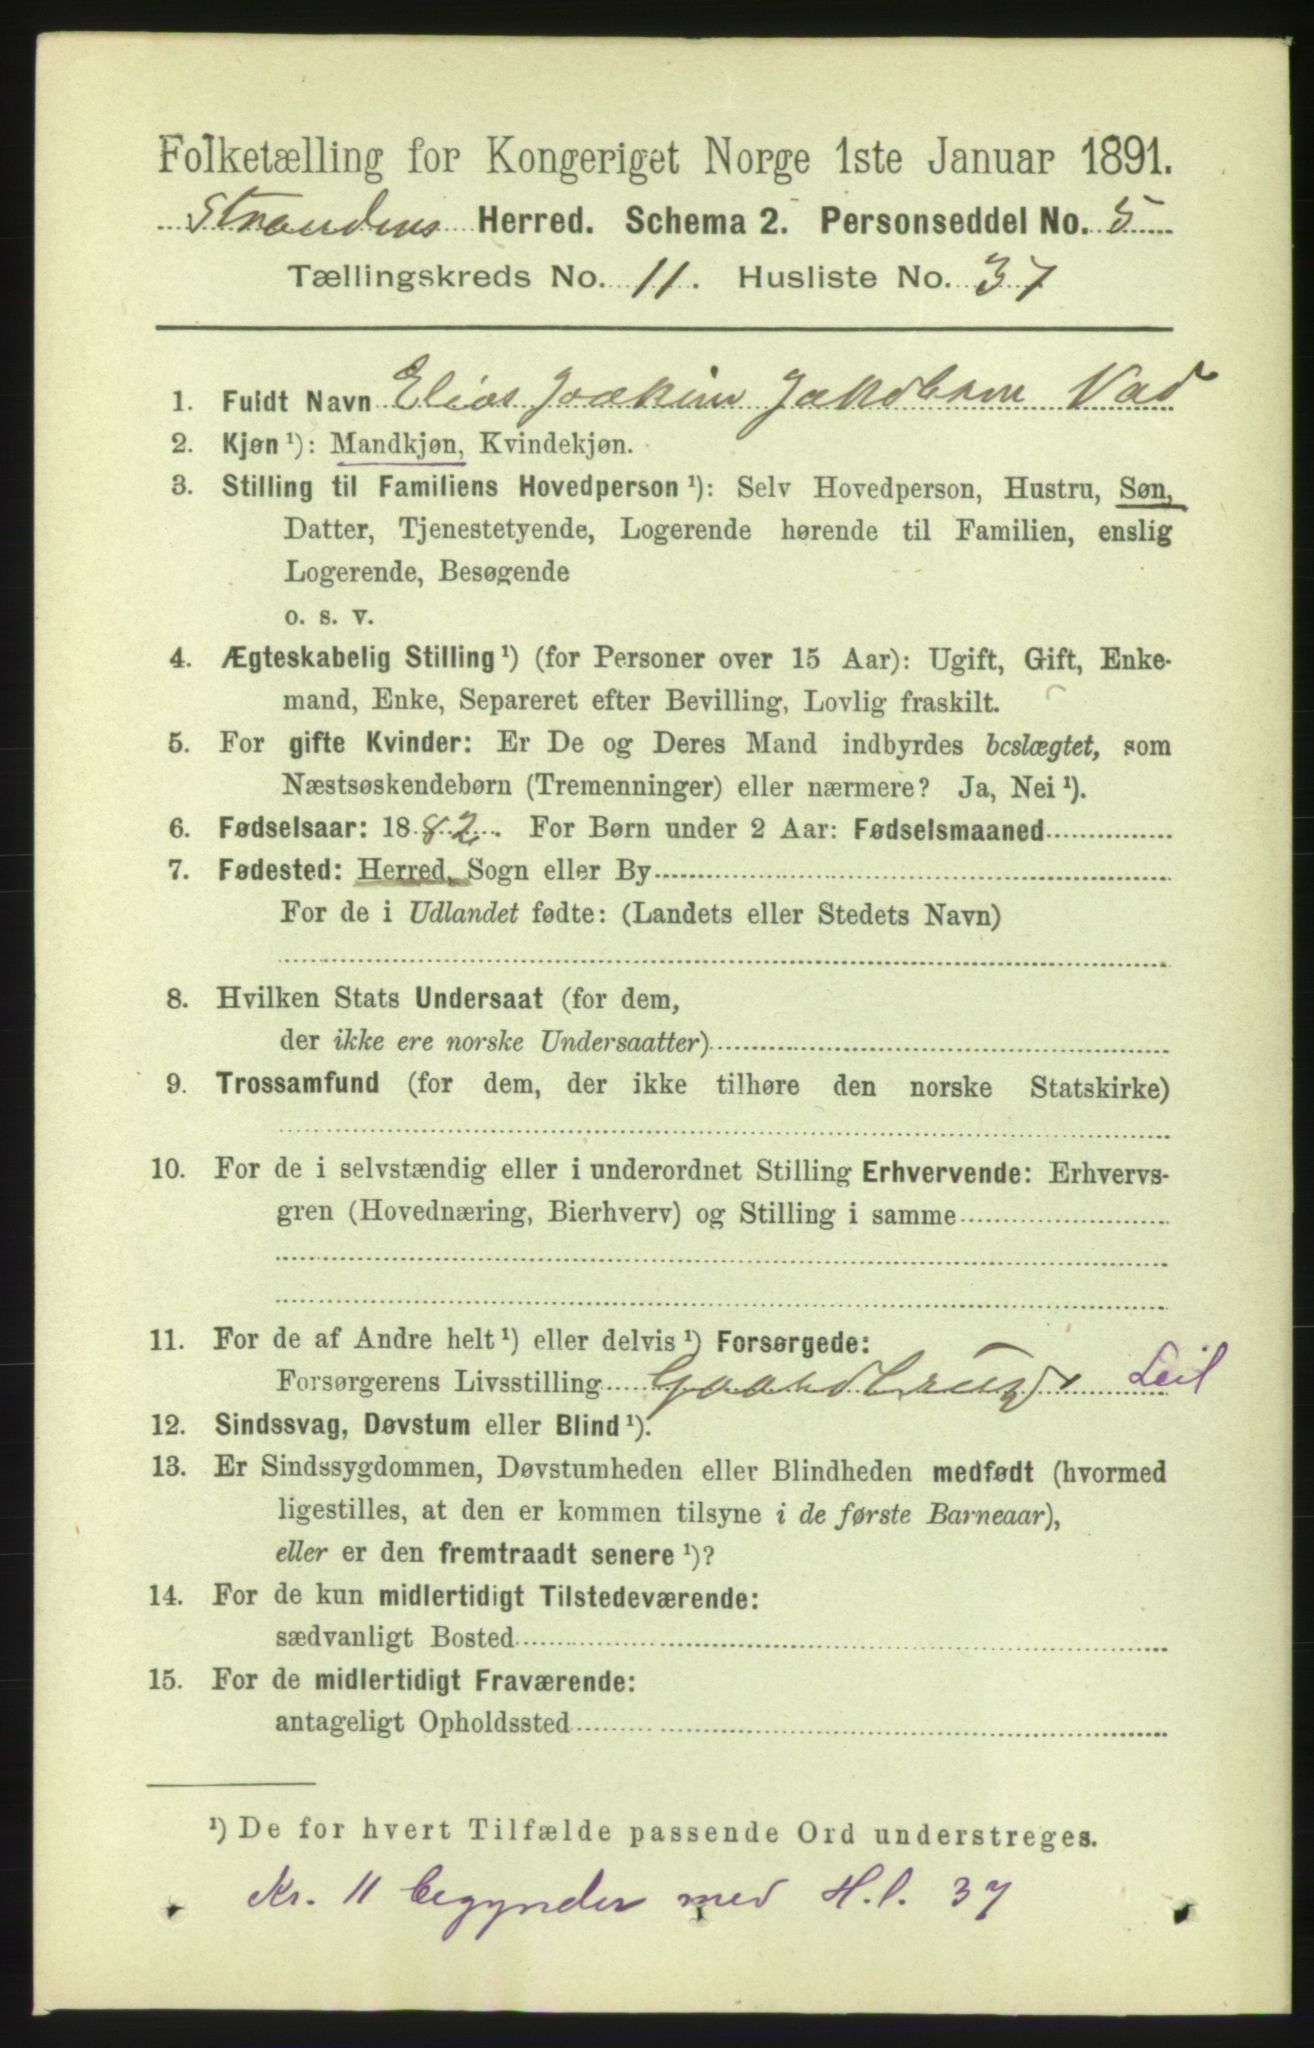 Folketælling for Kongeriget Norge 1ste Januar 1891.
Strandens Herred. Schema 2. Personseddel No. 5
Tællingskreds No. 11. Husliste No. 37
1. Fuldt Navn Elias Joakim Jakobsen Vad
2. Kjøn ¹): Mandkjøn, Kvindekjøn.
3. Stilling til Familiens Hovedperson ¹): Selv Hovedperson, Hustru, Søn,
Datter, Tjenestetyende, Logerende hørende til Familien, enslig
Logerende, Besøgende
o. s. v.
4. Ægteskabelig Stilling ¹) (for Personer over 15 Aar): Ugift, Gift, Enke-
mand, Enke, Separeret efter Bevilling, Lovlig fraskilt.
5. For gifte Kvinder: Er De og Deres Mand indbyrdes beslægtet, som
Næstsøskendebørn (Tremenninger) eller nærmere? Ja, Nei ¹).
6. Fødselsaar: 1882. For Børn under 2 Aar: Fødselsmaaned
7. Fødested: Herred, Sogn eller By
For de i Udlandet fødte: (Landets eller Stedets Navn)
8. Hvilken Stats Undersaat (for dem,
der ikke ere norske Undersaatter)
9. Trossamfund (for dem, der ikke tilhøre den norske Statskirke)
10. For de i selvstændig eller i underordnet Stilling Erhvervende: Erhvervs-
gren (Hovednæring, Bierhverv) og Stilling i samme
11. For de af Andre helt ¹) eller delvis ¹) Forsørgede:
Forsørgerens Livsstilling Gaardbrug. Leil
12. Sindssvag, Døvstum eller Blind ¹).
13. Er Sindssygdommen, Døvstumheden eller Blindheden medfødt (hvormed
ligestilles, at den er kommen tilsyne i de første Barneaar),
eller er den fremtraadt senere ¹)?
14. For de kun midlertidigt Tilstedeværende:
sædvanligt Bosted
15. For de midlertidigt Fraværende:
antageligt Opholdssted
¹) De for hvert Tilfælde passende Ord understreges.
Kr. 11 begynder med H.l. 37